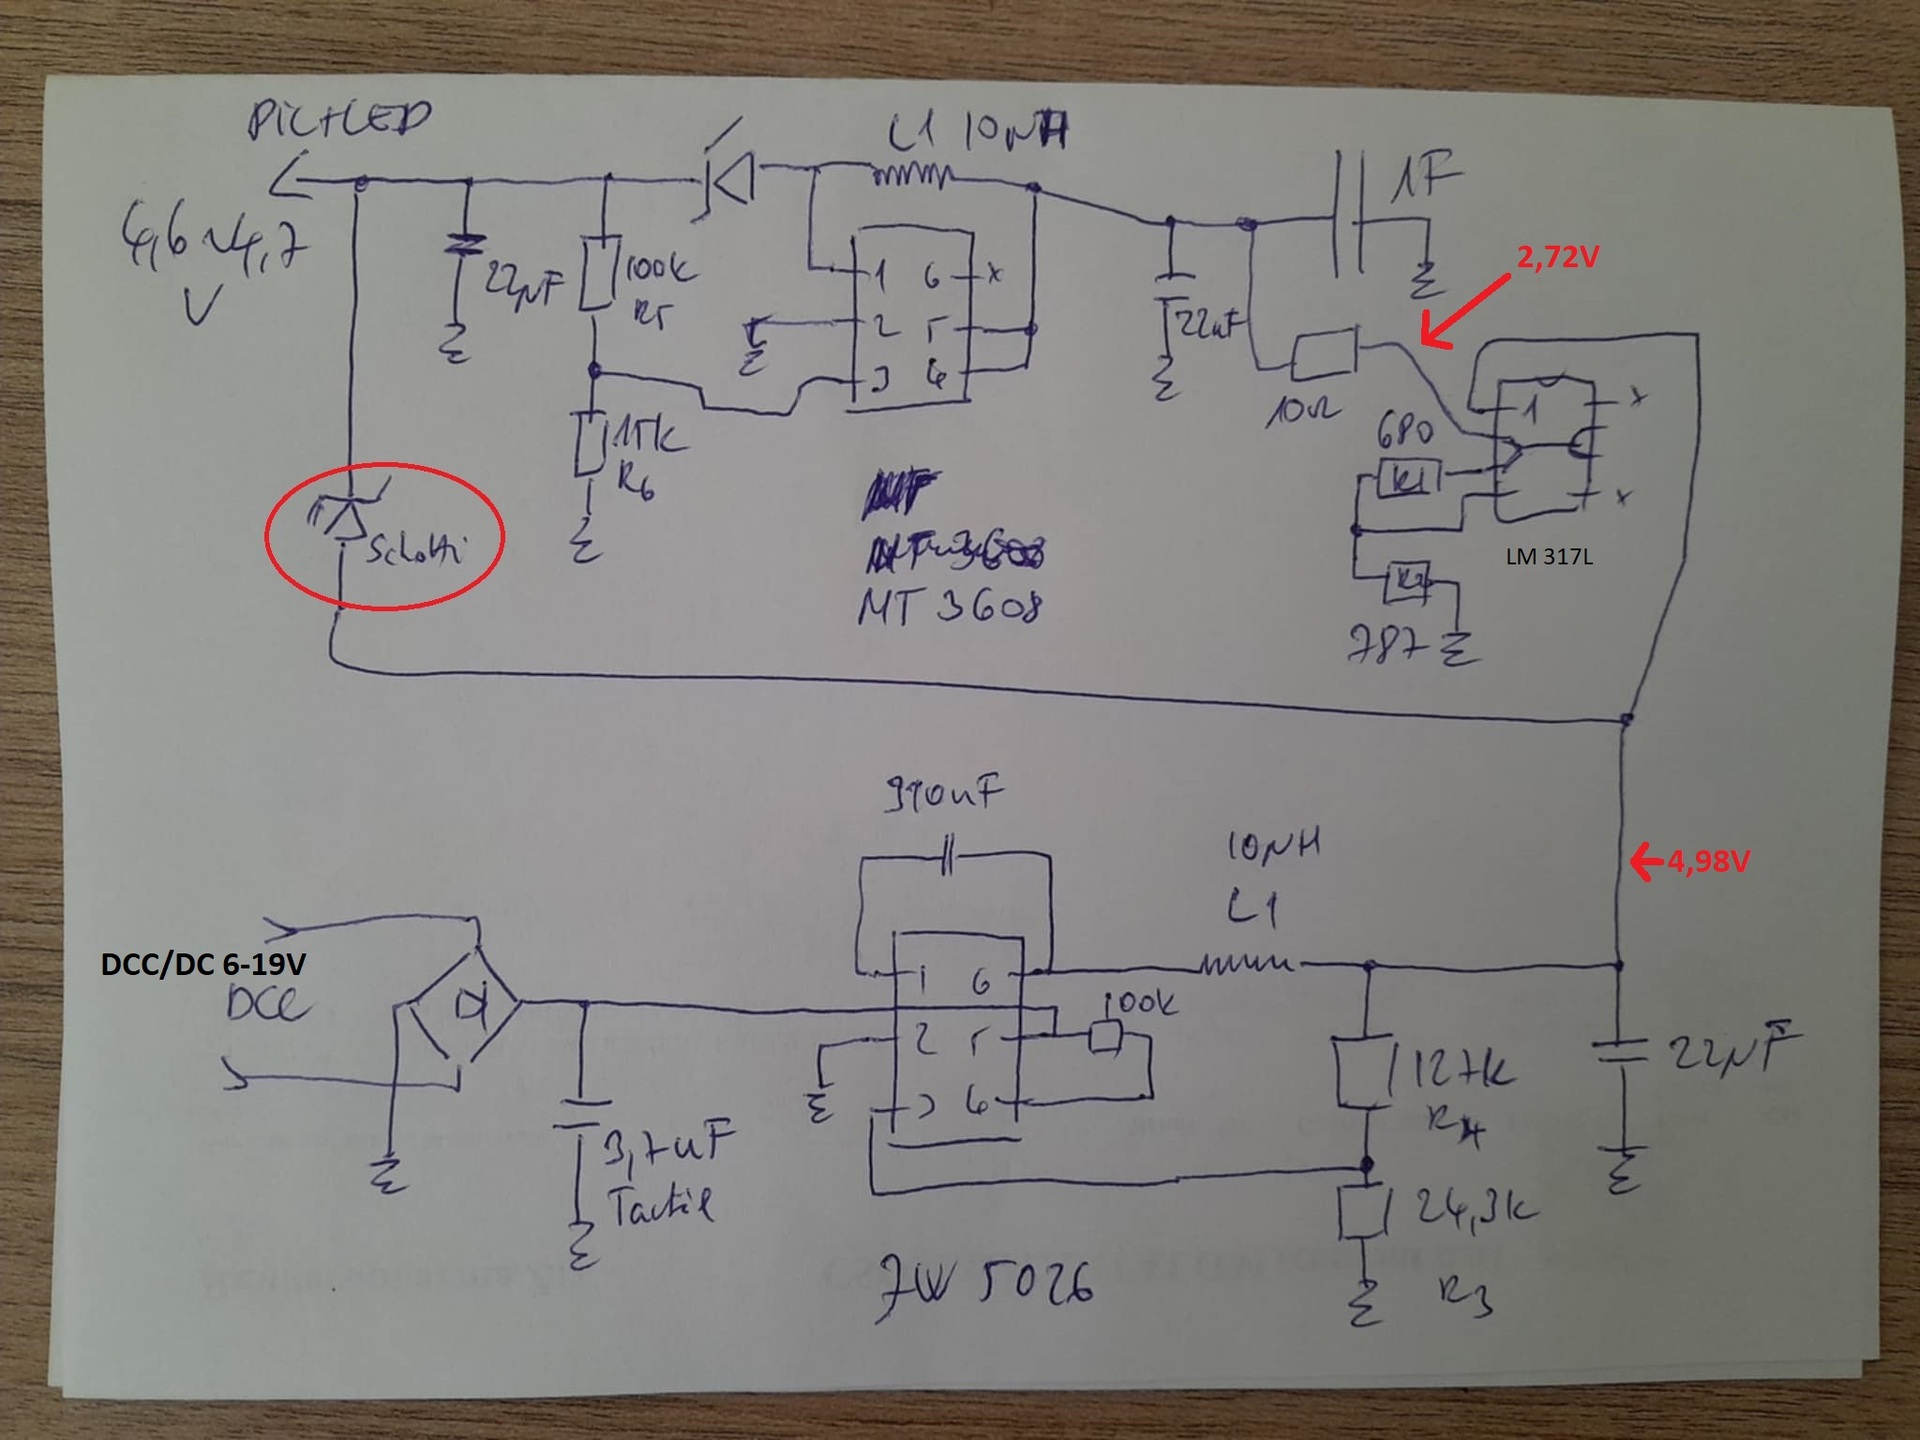 PIC+LED
4,6~4,7
V
22µF
100k
R5
15k
R6
L1 10µH
1 6 x
2 5
3 4
MT 3608
1F
2,72V
22uF
10Ω
680
R1
1 x
x
LM 317L
R2
787
Schotti
4,98V
910nF
10µH
L1
DCC/DC 6-19V
DCC
1 6
2 5
3 6
100k
3,7uF
Tactil
127k
R4
22µF
24,3k
R3
JW 5026